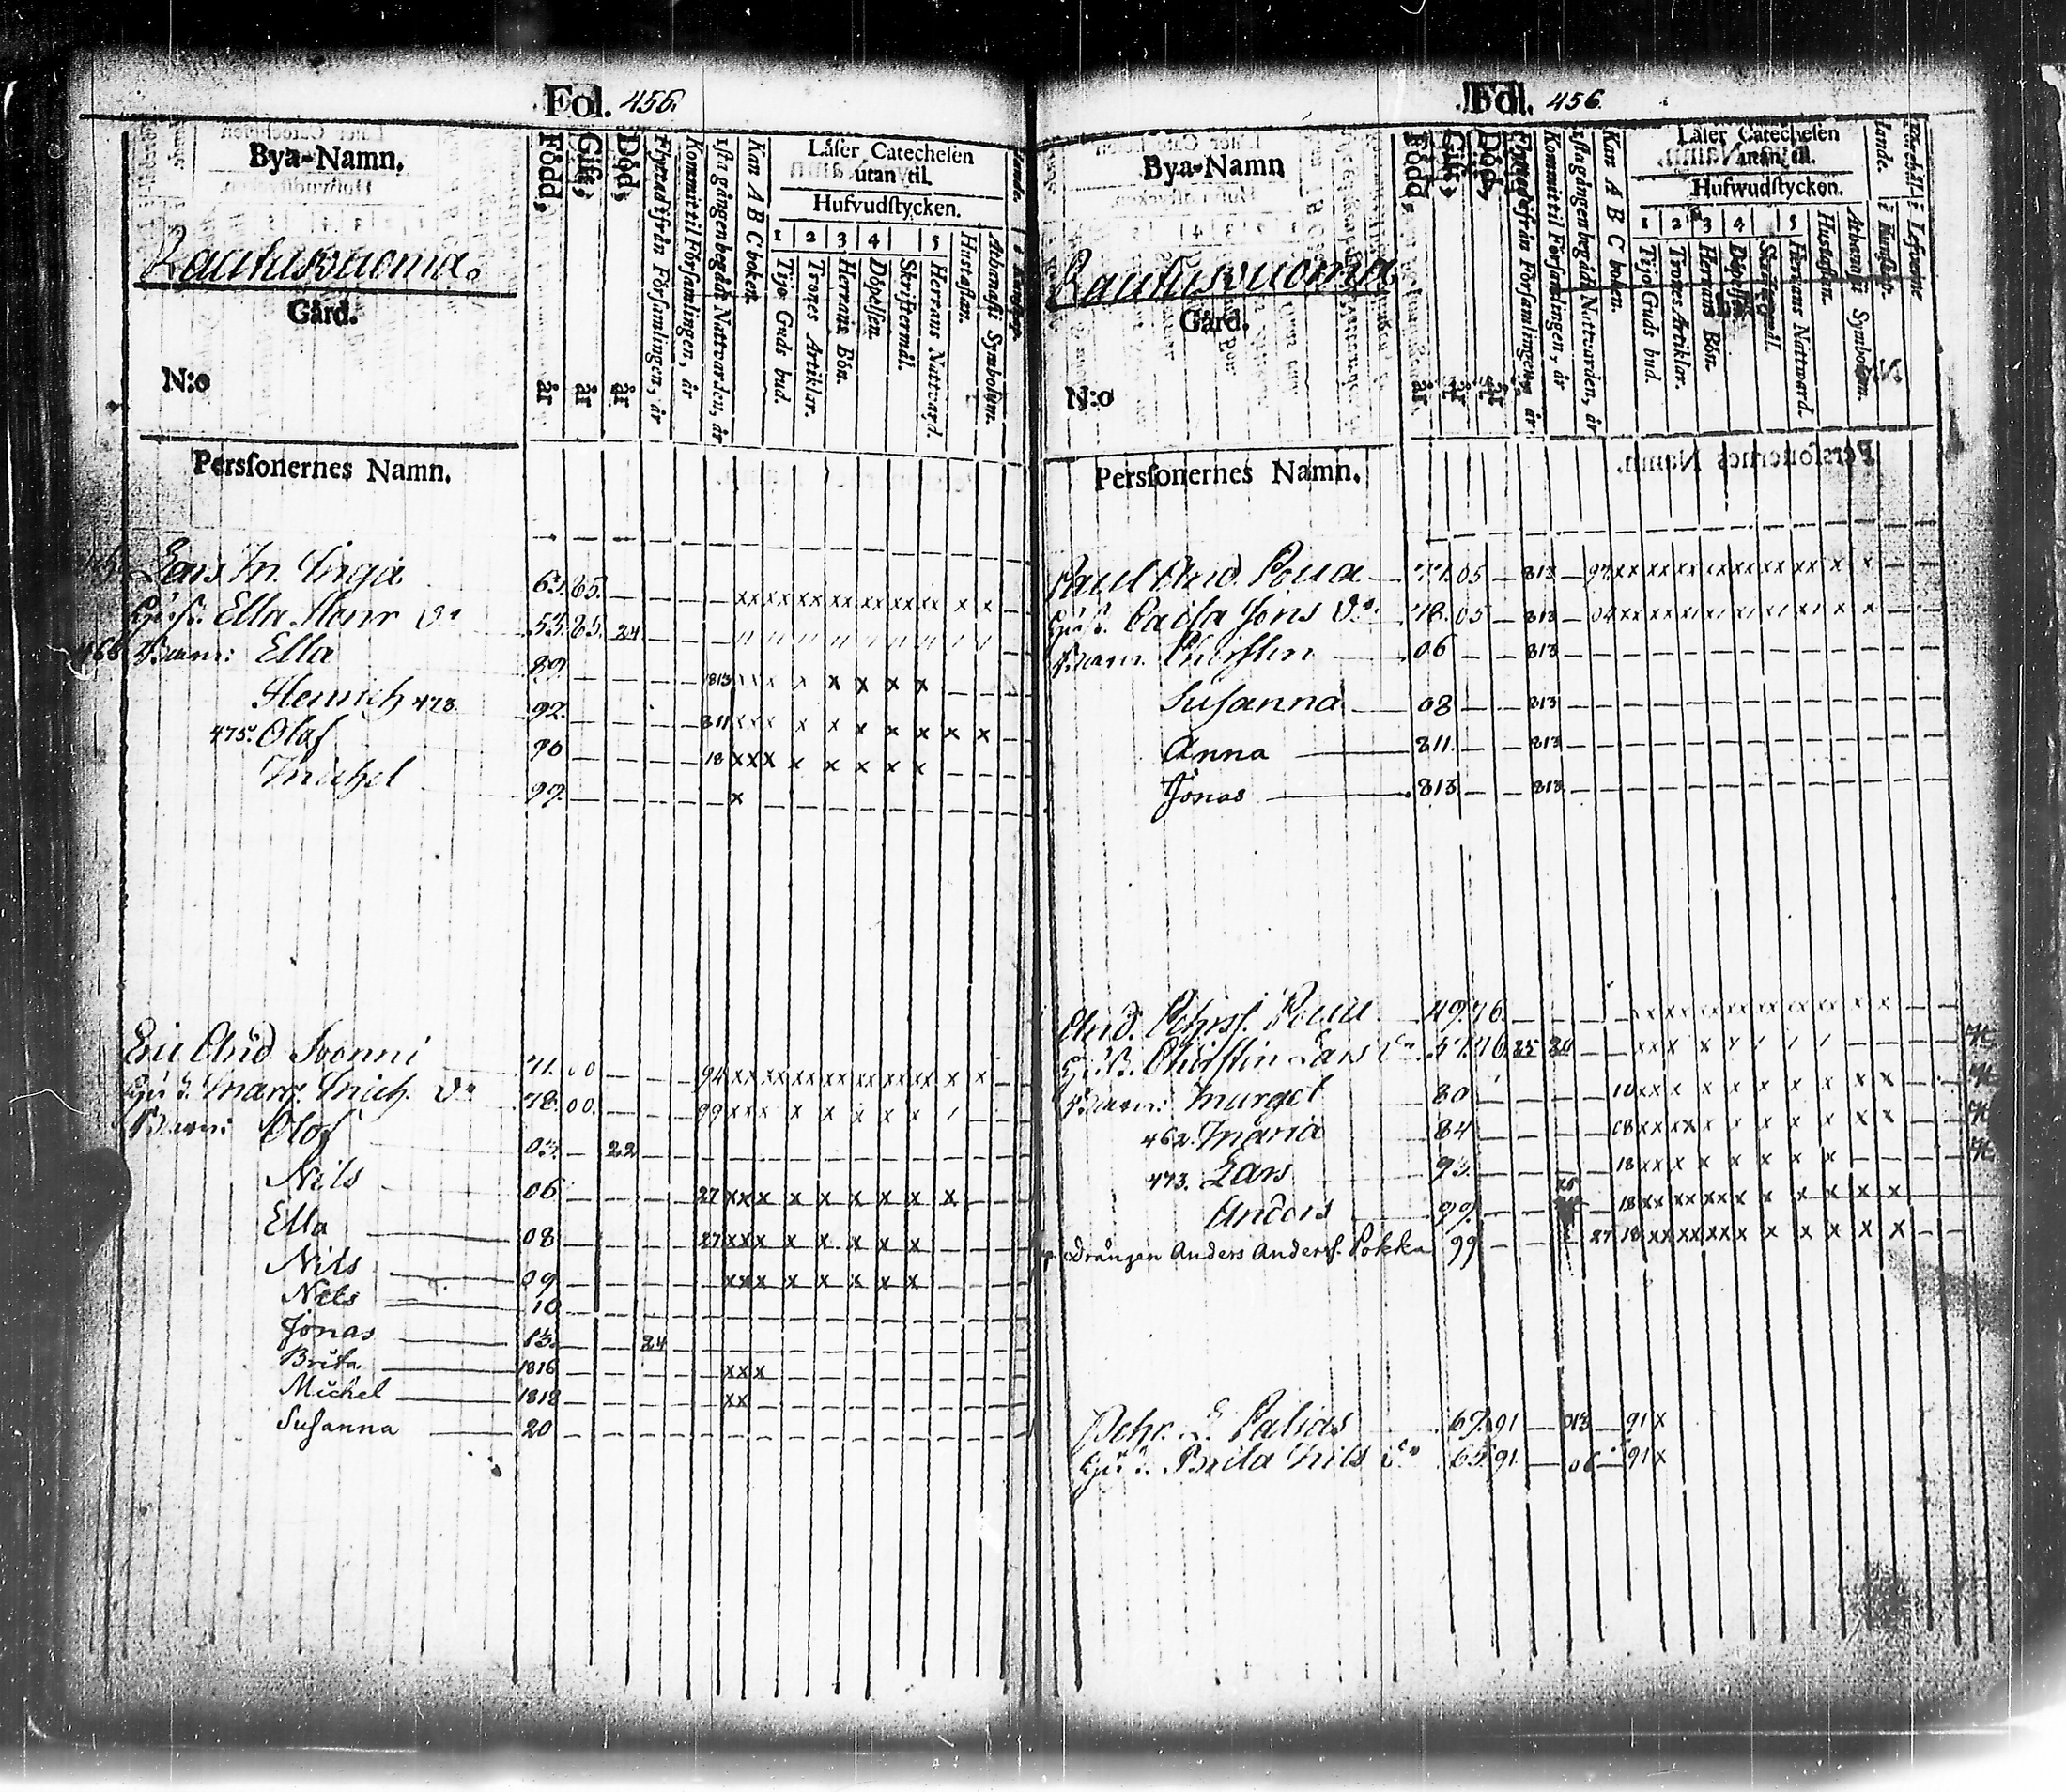 Fol. 456.
Bya-Namn.
Rautusvuoma.
Gård.
N:o
Född, år
Gift, år
Död, år
Flyttad ifrån Församlingen, år
Kommit til Församlingen, år
1sta gången begådt Nattvarden, år
Kan A B C boken.
Läser Catechesen utan til.
Hufvudstycken.
1 2 3 4 5
Tijo Guds bud.
Trones Artiklar.
Herrans Bön.
Döpelsen.
Skriftermål.
Herrans Nattvard.
Hustaflan.
Athanasii Symbolum.
Personernes Namn.
Lars In. Inga 63. 85.
Hust. Ella Henr dr 55. 85. 24
466 Barn: Ella 89. 1813
Henrich 473. 92. 811
475. Olof 96 18
Michel 99.
Eric And. Svonni 71. 00 94
Hust. Marg. Mich. dr 78. 00. 99
Barn: Olof 03. 22
Nils 06 27
Ella 08 27
Nils 09
Nils 10
Jonas 13. 24
Brita 1816
Michel 1818
Susanna 20
Fol. 456.
Bya-Namn
Rautusvuoma
Gård.
N:o
Född, år
Gift, år
Död, år
Flyttad ifrån Församlingen, år
Kommit til Församlingen, år
1sta gången begådt Nattvarden, år
Kan A B C boken.
Läser Catechesen utan til.
Hufwudstycken.
1 2 3 4 5
Tijo Guds bud.
Trones Artiklar.
Herrans Bön.
Döpelsen.
Skriftermål.
Herrans Nattward.
Hustaflan.
Athanasii Symbolum.
Personernes Namn.
Paul And. Poua 77. 05 813 97
Hust. Cajsa Jöns dr. 78. 05 813 04
Barn. Christin 06 813
Susanna 08 813
Anna 811. 813
Jonas 813 813
And. Pehrss. Poua 49. 76.
Hust. Christin Lars dr 57. 76. 25 20
Barn: Marget 80 10
462. Maria 84 08
473. Lars 93. 18
Anders 99. 18
Drängen Anders Anderss. Pokka 99 27 18
Pehr. L. Palias 67. 91 013 91
Hust. Brita Nils dr 65. 91. 06 91